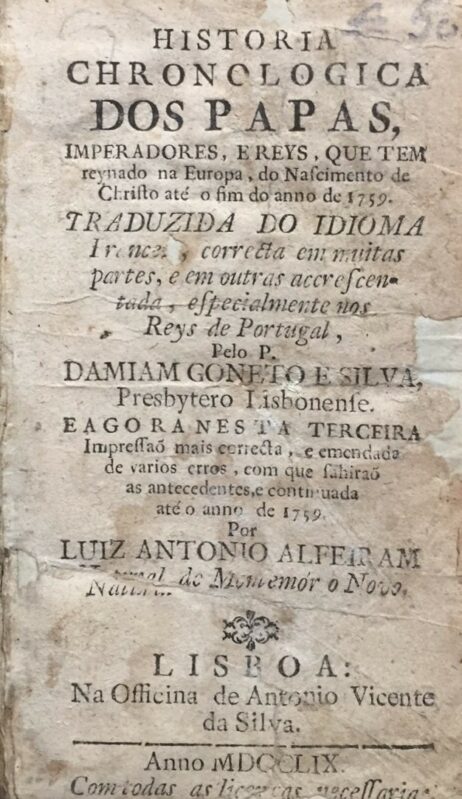 HISTORIA
CHRONOLOGICA
DOS PAPAS,
IMPERADORES, E REYS, QUE TEM
reynado na Europa, do Naſcimento de
Chriſto até o fim do anno de 1759.
TRADUZIDA DO IDIOMA
, correcta em muitas
partes, e em outras accreſcen-
tada, eſpecialmente nos
Reys de Portugal,
Pelo P.
DAMIAM GONETO E SILVA,
Presbytero Lisbonenſe.
E AGORA NESTA TERCEIRA
Impreſſaõ mais correcta, e emendada
de varios erros, com que ſahiraõ
as antecedentes, e continuada
até o anno de 1759.
Por
LUIZ ANTONIO ALFEIRAM
de Montemór o Novo.
LISBOA:
Na Officina de Antonio Vicente
da Silva.
Anno MDCCLIX.
Com todas as licenças neceſſarias